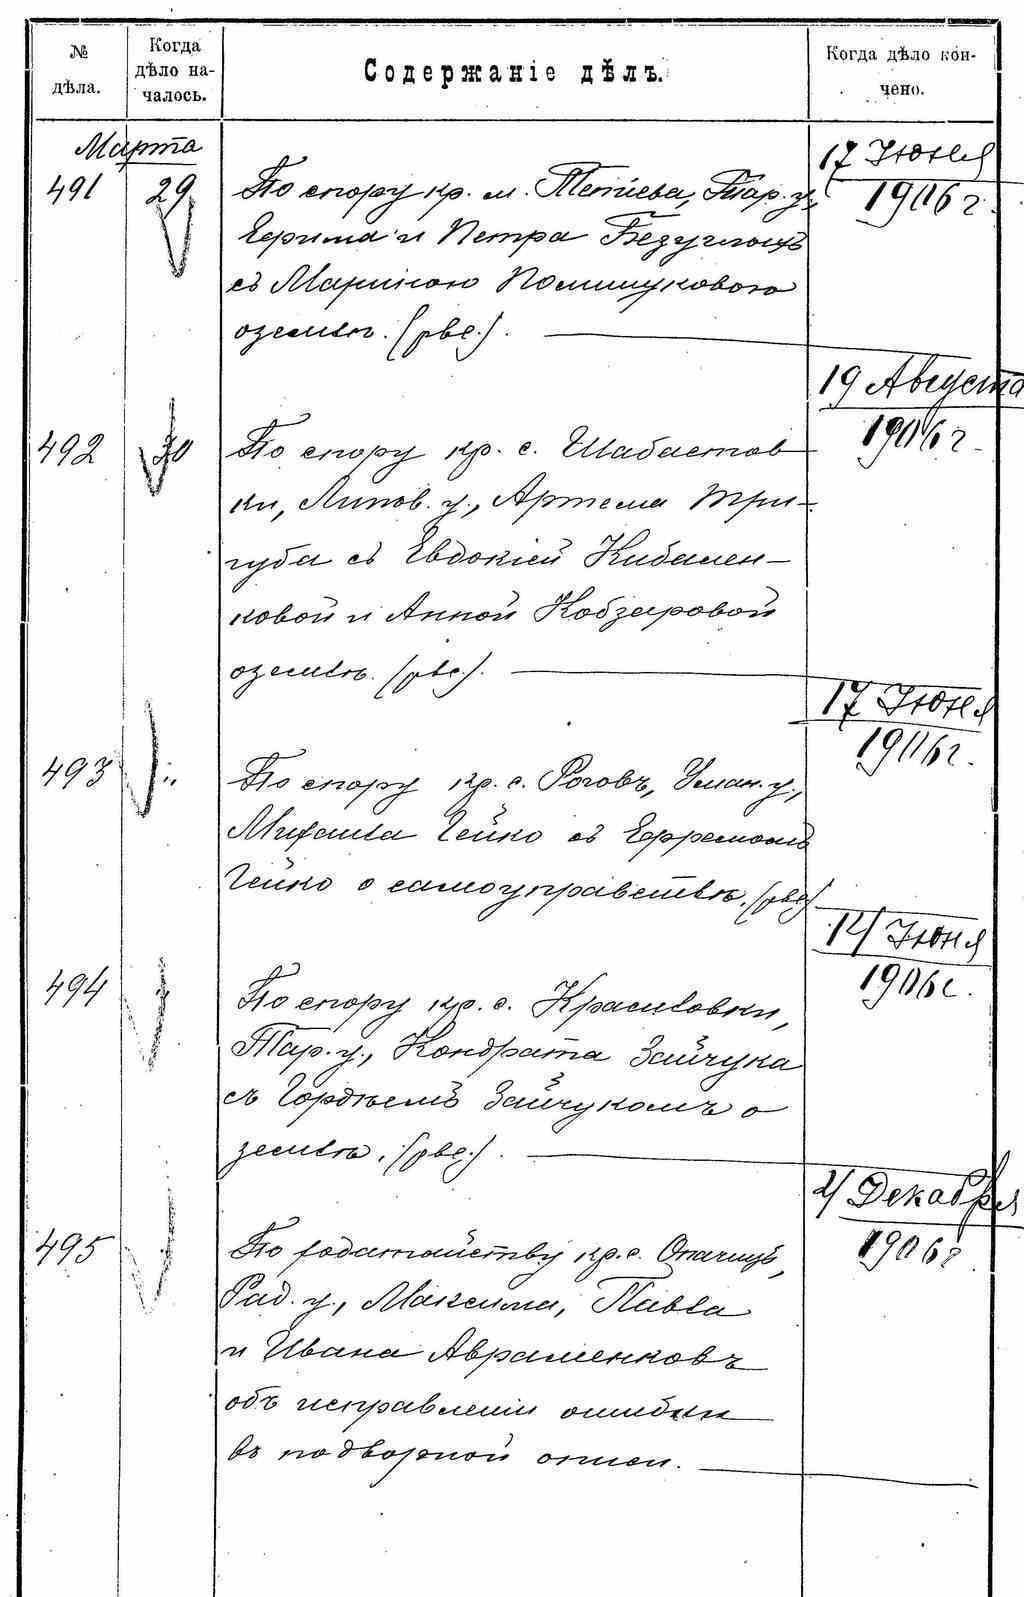 № дѣла.
Когда дѣло на-чалось.
Содержаніе дѣлъ.
Когда дѣло кон-чено.
Марта
491
29
По спору кр. м. Тетіева, Тар. у.,
Ефима и Петра Безуглыхъ
съ Мариною Полищуковою
о землѣ. (рве.).
17 Іюня
1906 г.
492
30
По спору кр. с. Шабастов
ки, Липов. у., Артема Три-
губа съ Евдокіей Кибален-
ковой и Анной Кобзаровой
о землѣ. (рве.).
19 Августа
1906 г.
493
"
По спору кр. с. Роговъ, Уман. у.,
Михаила Гейко съ Ефремомъ
Гейко о самоуправствѣ. (рве)
17 Іюня
1906 г.
494
По спору кр. с. Красиловки,
Тар. у., Кондрата Зайчука
съ Гордѣемъ Зайчукомъ о
землѣ. (рве.).
14 Іюня
1906 г.
495
По ходатайству кр. с. Опачичъ,
Рад. у., Максима, Павла
и Ивана Авраменковъ
объ исправленіи ошибки
въ подворной описи.
Декабря
1906 г